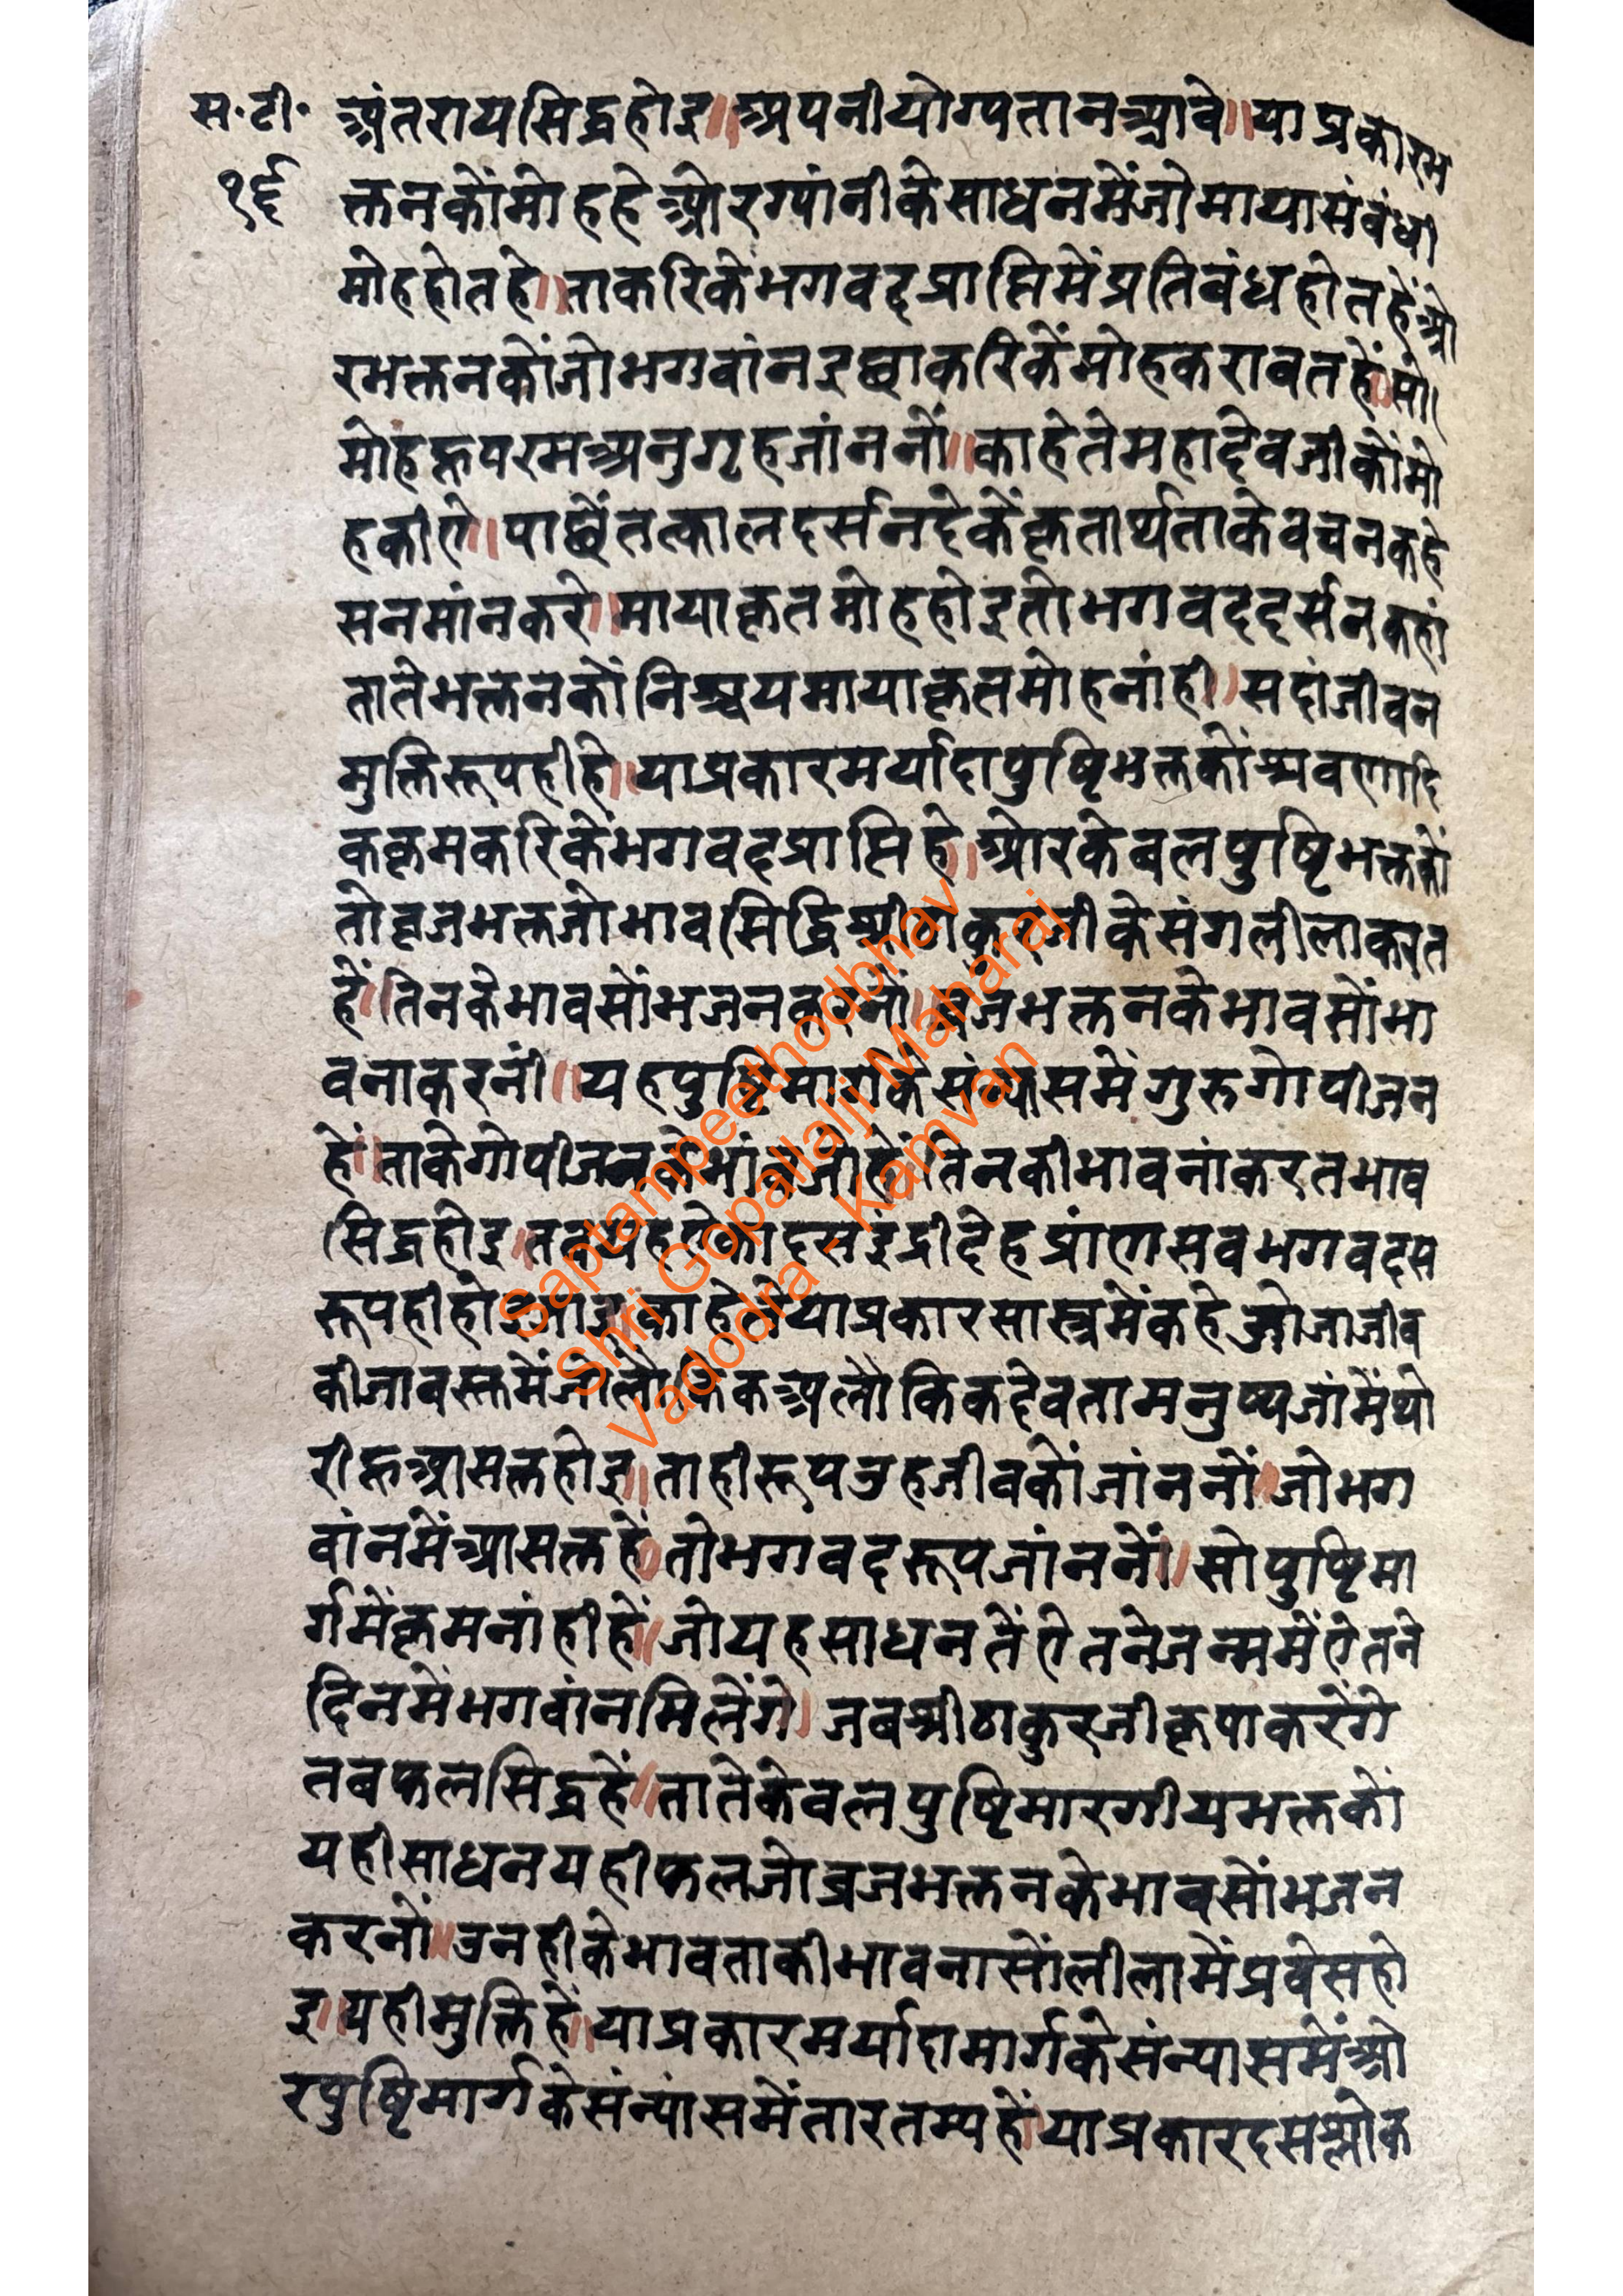 स॰टी॰ अंतरायसिद्धहोइ॥अपनीयोग्यतानआवे॥याप्रकारभ
१६ क्तनकोंमोहहेओरग्यांनीकेसाधनमेंजोमायासंबंधी
मोहहोतहे॥ताकरिकेंभगवदप्राप्तिमेंप्रतिबंधहोतहेंओ
रभक्तनकोंजोभगवांनइछाकरिकेंमोहकरावतहें॥सो
मोहरूपपरमअनुगृहजांननों॥काहेतेमहादेवजीकोंमो
हकीऐ॥पाछेंतत्कालदर्सनदेकेंकृतार्थताकेवचनकहे
सनमांनकरे॥मायाकृतमोहहोइतोभगवददर्सनकहां
तातेभक्तनकोंनिश्चयमायाकृतमोहनांही।सदांजीवन
मुक्तिरूपहीहे॥याप्रकारमर्यादापुष्टिभक्तकोंश्रवणादि
कक्रमकरिकेंभगवदप्राप्तिहे।ओरकेवलपुष्टिभक्तकों
तोवृजभक्तजोभावसिद्धिश्रीठाकुरजीकेसंगलीलाकरत
हें॥तिनकेभावसोंभजनकरनों॥वृजभक्तनकेभावसोंभा
वनाकरनीं॥यहपुष्टिमार्गकेसंन्याससमेंगुरुगोपीजन
हें॥ताकेगोपीजनकेभावजोहें॥तिनकीभावनांकरतभाव
सिद्धहोइ॥तबयहऐकादसइंद्रीदेहप्रांणसवभगवदस
रूपहीहोइजाइ॥काहेतेंयाप्रकारसास्त्रमेंकहेजोजाजीव
कीजावस्तमेंजोलौकिकअलौकिकदेवतामनुष्यजांमेंथो
रीहूआसक्तहोइ॥ताहीरूपउहजीवकोंजांननों॥जोभग
वांनमेंआसक्तहें॥तोभगवदरूपजांननों॥सोपुष्टिमा
र्गमेंक्रमनांहीहें॥जोयहसाधनतेंऐतनेजन्ममेंऐतने
दिनमेंभगवांनमिलेंगे।जबश्रीठाकुरजीकृपाकरेंगे
तबफलसिद्धहें॥तातेकेवलपुष्टिमारगीयभक्तकों
यहीसाधनयहीफलजोव्रजभक्तनकेभावसोंभजन
करनों॥उनहीकेभावताकीभावनासोंलीलामेंप्रवेसहो
इ॥यहीमुक्तिहें॥याप्रकारमर्यादामार्गकेसंन्यासमेंओ
रपुष्टिमार्गकेसंन्यांसमेंतारतम्यहें॥याप्रकारदसश्लोक
Saptampeethodbhav
Shri Gopallalji Maharaj
Vadodra - Kamvan